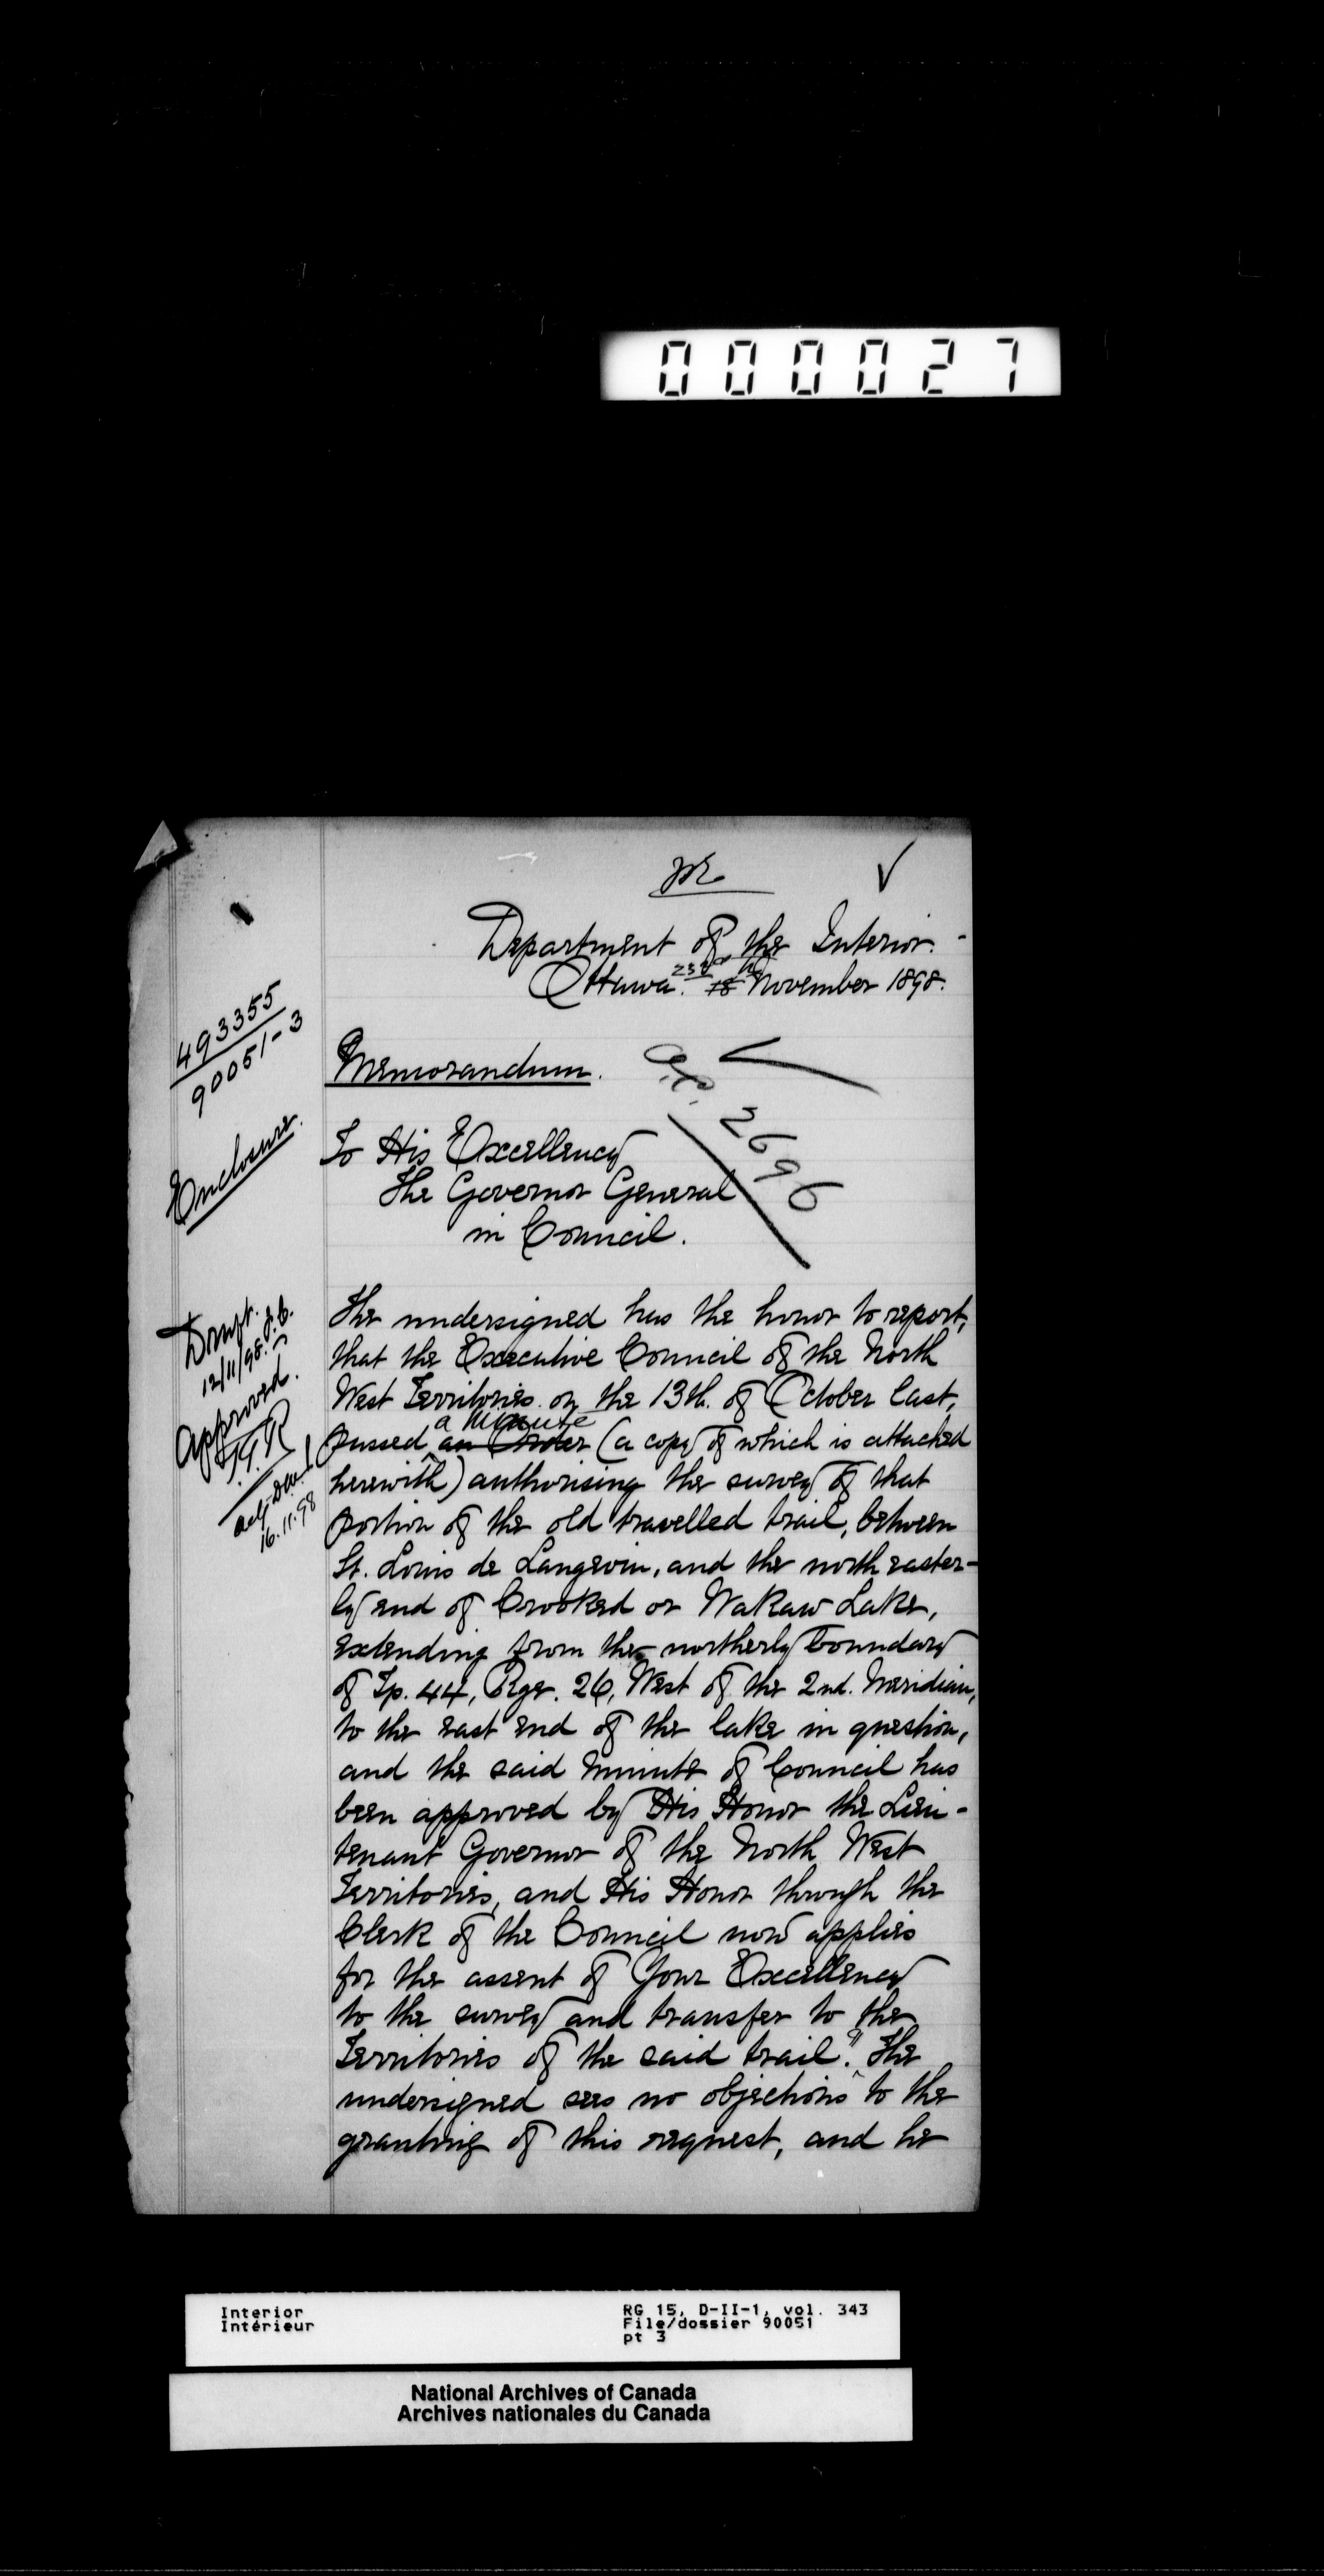 000027
Department of the Interior.
Ottawa. 23rd November 1898.
493355
90051-3
Memorandum.
2696
Enclosure.
To His Excellency
The Governor General
in Council.
Draft. J.C.
12/11/98.
Approved.
16.11.98
The undersigned has the honor to report,
that the Executive Council of the North
West Territories on the 13th. of October last,
a Minute
passed an Order (a copy of which is attached
herewith) authorising the survey of that
portion of the old travelled trail, between
St. Louis de Langevin, and the north easter-
ly end of Crooked or Wakaw Lake,
extending from the northerly boundary
of Tp. 44, Rge. 26, West of the 2nd. Meridian,
to the east end of the lake in question,
and the said minute of Council has
been approved by His Honor the Lieu-
tenant Governor of the North West
Territories, and His Honor through the
Clerk of the Council now applies
for the assent of Your Excellency
to the survey and transfer to the
Territories of the said trail. The
undersigned sees no objections to the
granting of this request, and he
Interior
Intérieur
RG 15, D-II-1, vol. 343
File/dossier 90051
pt 3
National Archives of Canada
Archives nationales du Canada